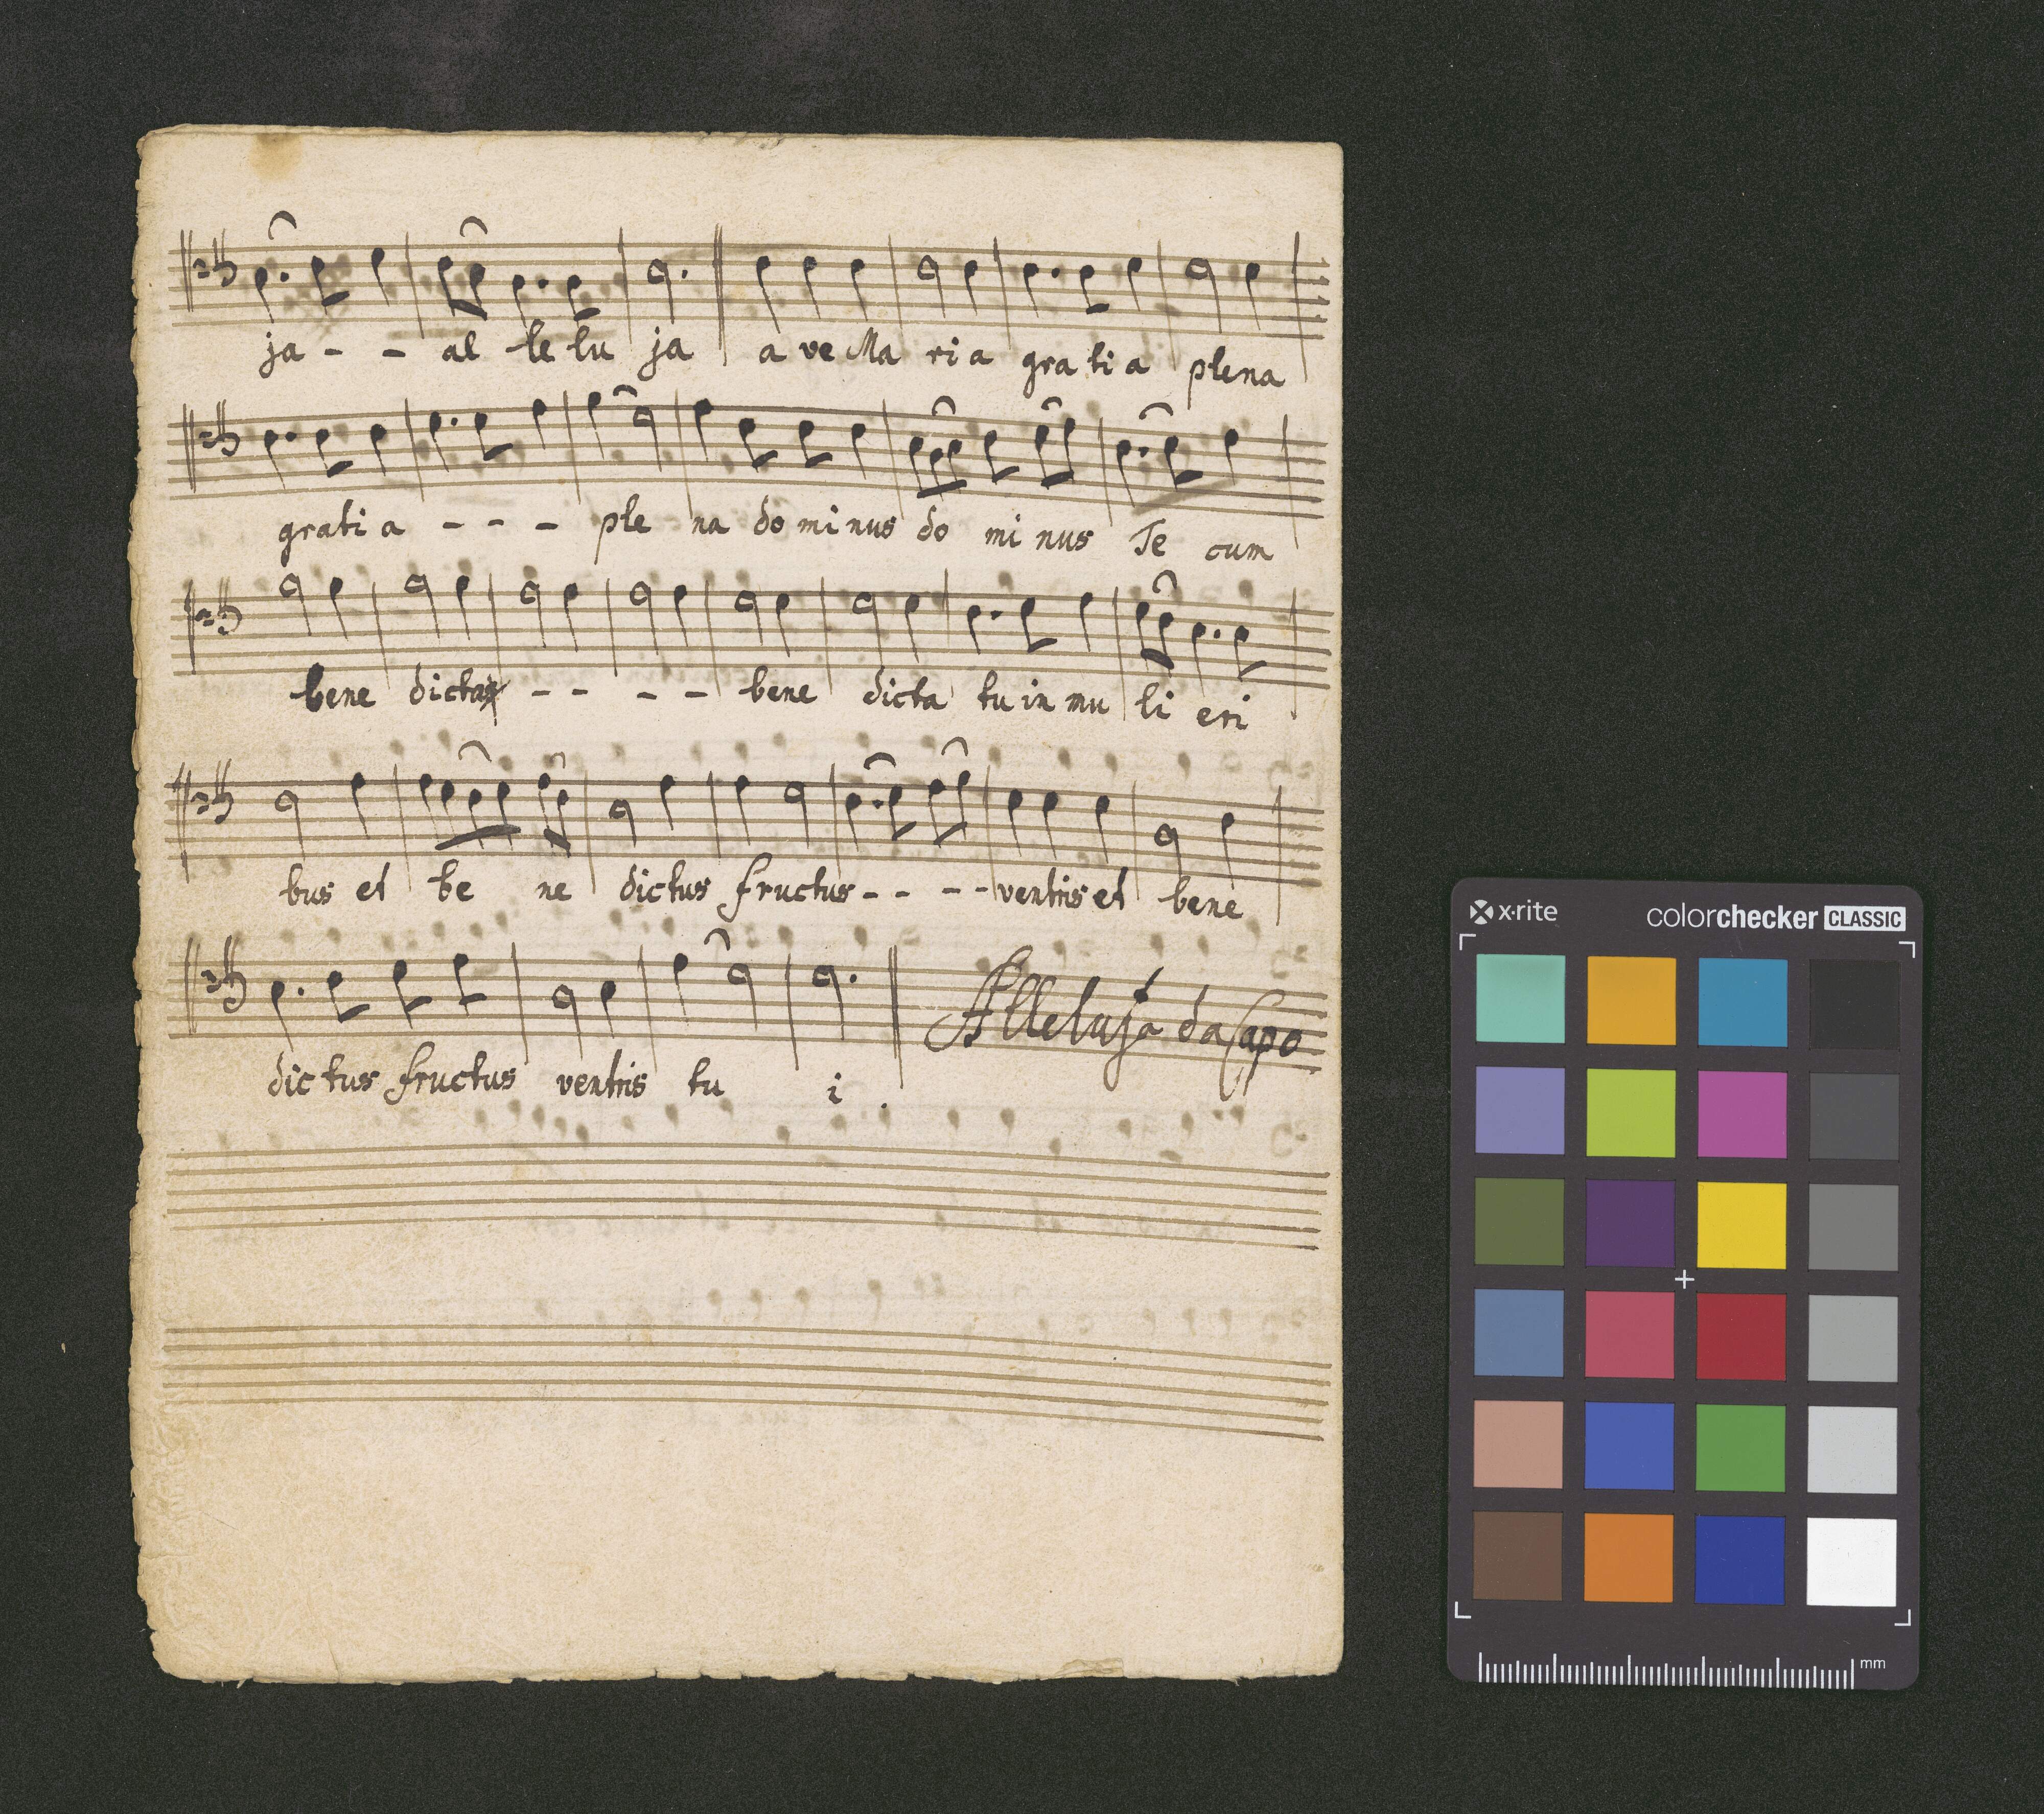 ja - - al le lu ja a ve Ma ri a gra ti a plena
grati a - - - ple na do mi nus do mi nus Te cum
bene dicta - - - - bene dicta tu in mu li eri
bus et be ne dictus fructus - - - - ventris et bene
Alleluja da Capo
dic tus fructus ventris tu i .
x·rite colorchecker CLASSIC
mm